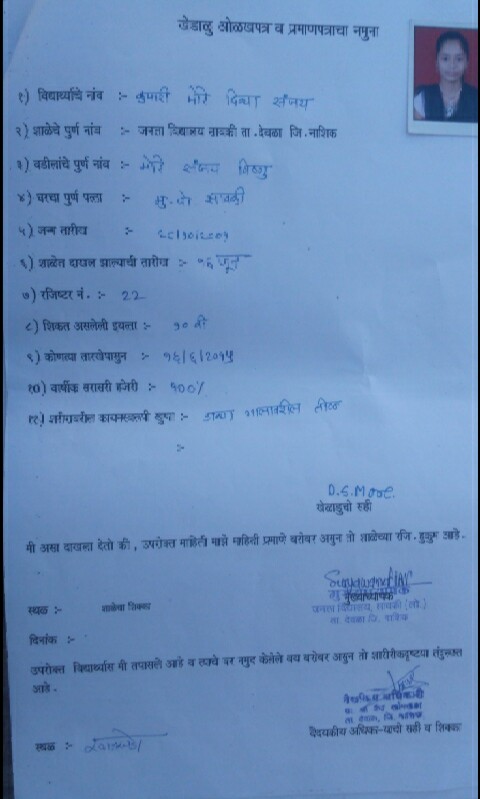 खेडाळु ओळखपत्र व प्रमाणपत्राचा नमुना
१) विद्यार्थ्याचे नांव :- कुमारी मोरे दिव्या संजय
२) शाळेचे पुर्ण नांव :- जनता विद्यालय ता. देवळा जि. नाशिक
३) वडीलांचे पुर्ण नांव :- मोरे संजय विष्णु
४) घरचा पुर्ण पत्ता :- मु. पो.
५) जन्म तारीख :-
६) शाळेत दाखल झाल्याची तारीख :- १६ जून
७) रजिष्टर नं. :- 22
८) शिकत असलेली इयत्ता :- १० वी
९) कोणत्या तारखेपासुन :- १६/६/२०१५
१०) वार्षीक सरासरी हजेरी :- १००%
११) शरीरावरील कायमस्वरुपी खुणा :- डाव्या गालावरील तीळ
:-
D.S.More.
खेळाडुची सही
मी असा दाखला देतो की , उपरोक्त माहिती माझे माहिती प्रमाणे बरोबर असुन तो शाळेच्या रजि. हुकुम आहे.
मुख्याध्यापक
जनता विद्यालय,
ता. देवळा जि. नाशिक
स्थळ :- शाळेचा शिक्का
दिनांक :-
उपरोक्त विद्यार्थ्यास मी तपासले आहे व त्याचे वर नमुद केलेले वय बरोबर असुन तो शारीरीकदृष्टया तंदुरुस्त
आहे.
वैद्यकिय अधिकारी
ता. देवळा, जि. नाशिक
स्थळ :-
वैदयकीय अधिका-याची सही व शिक्का